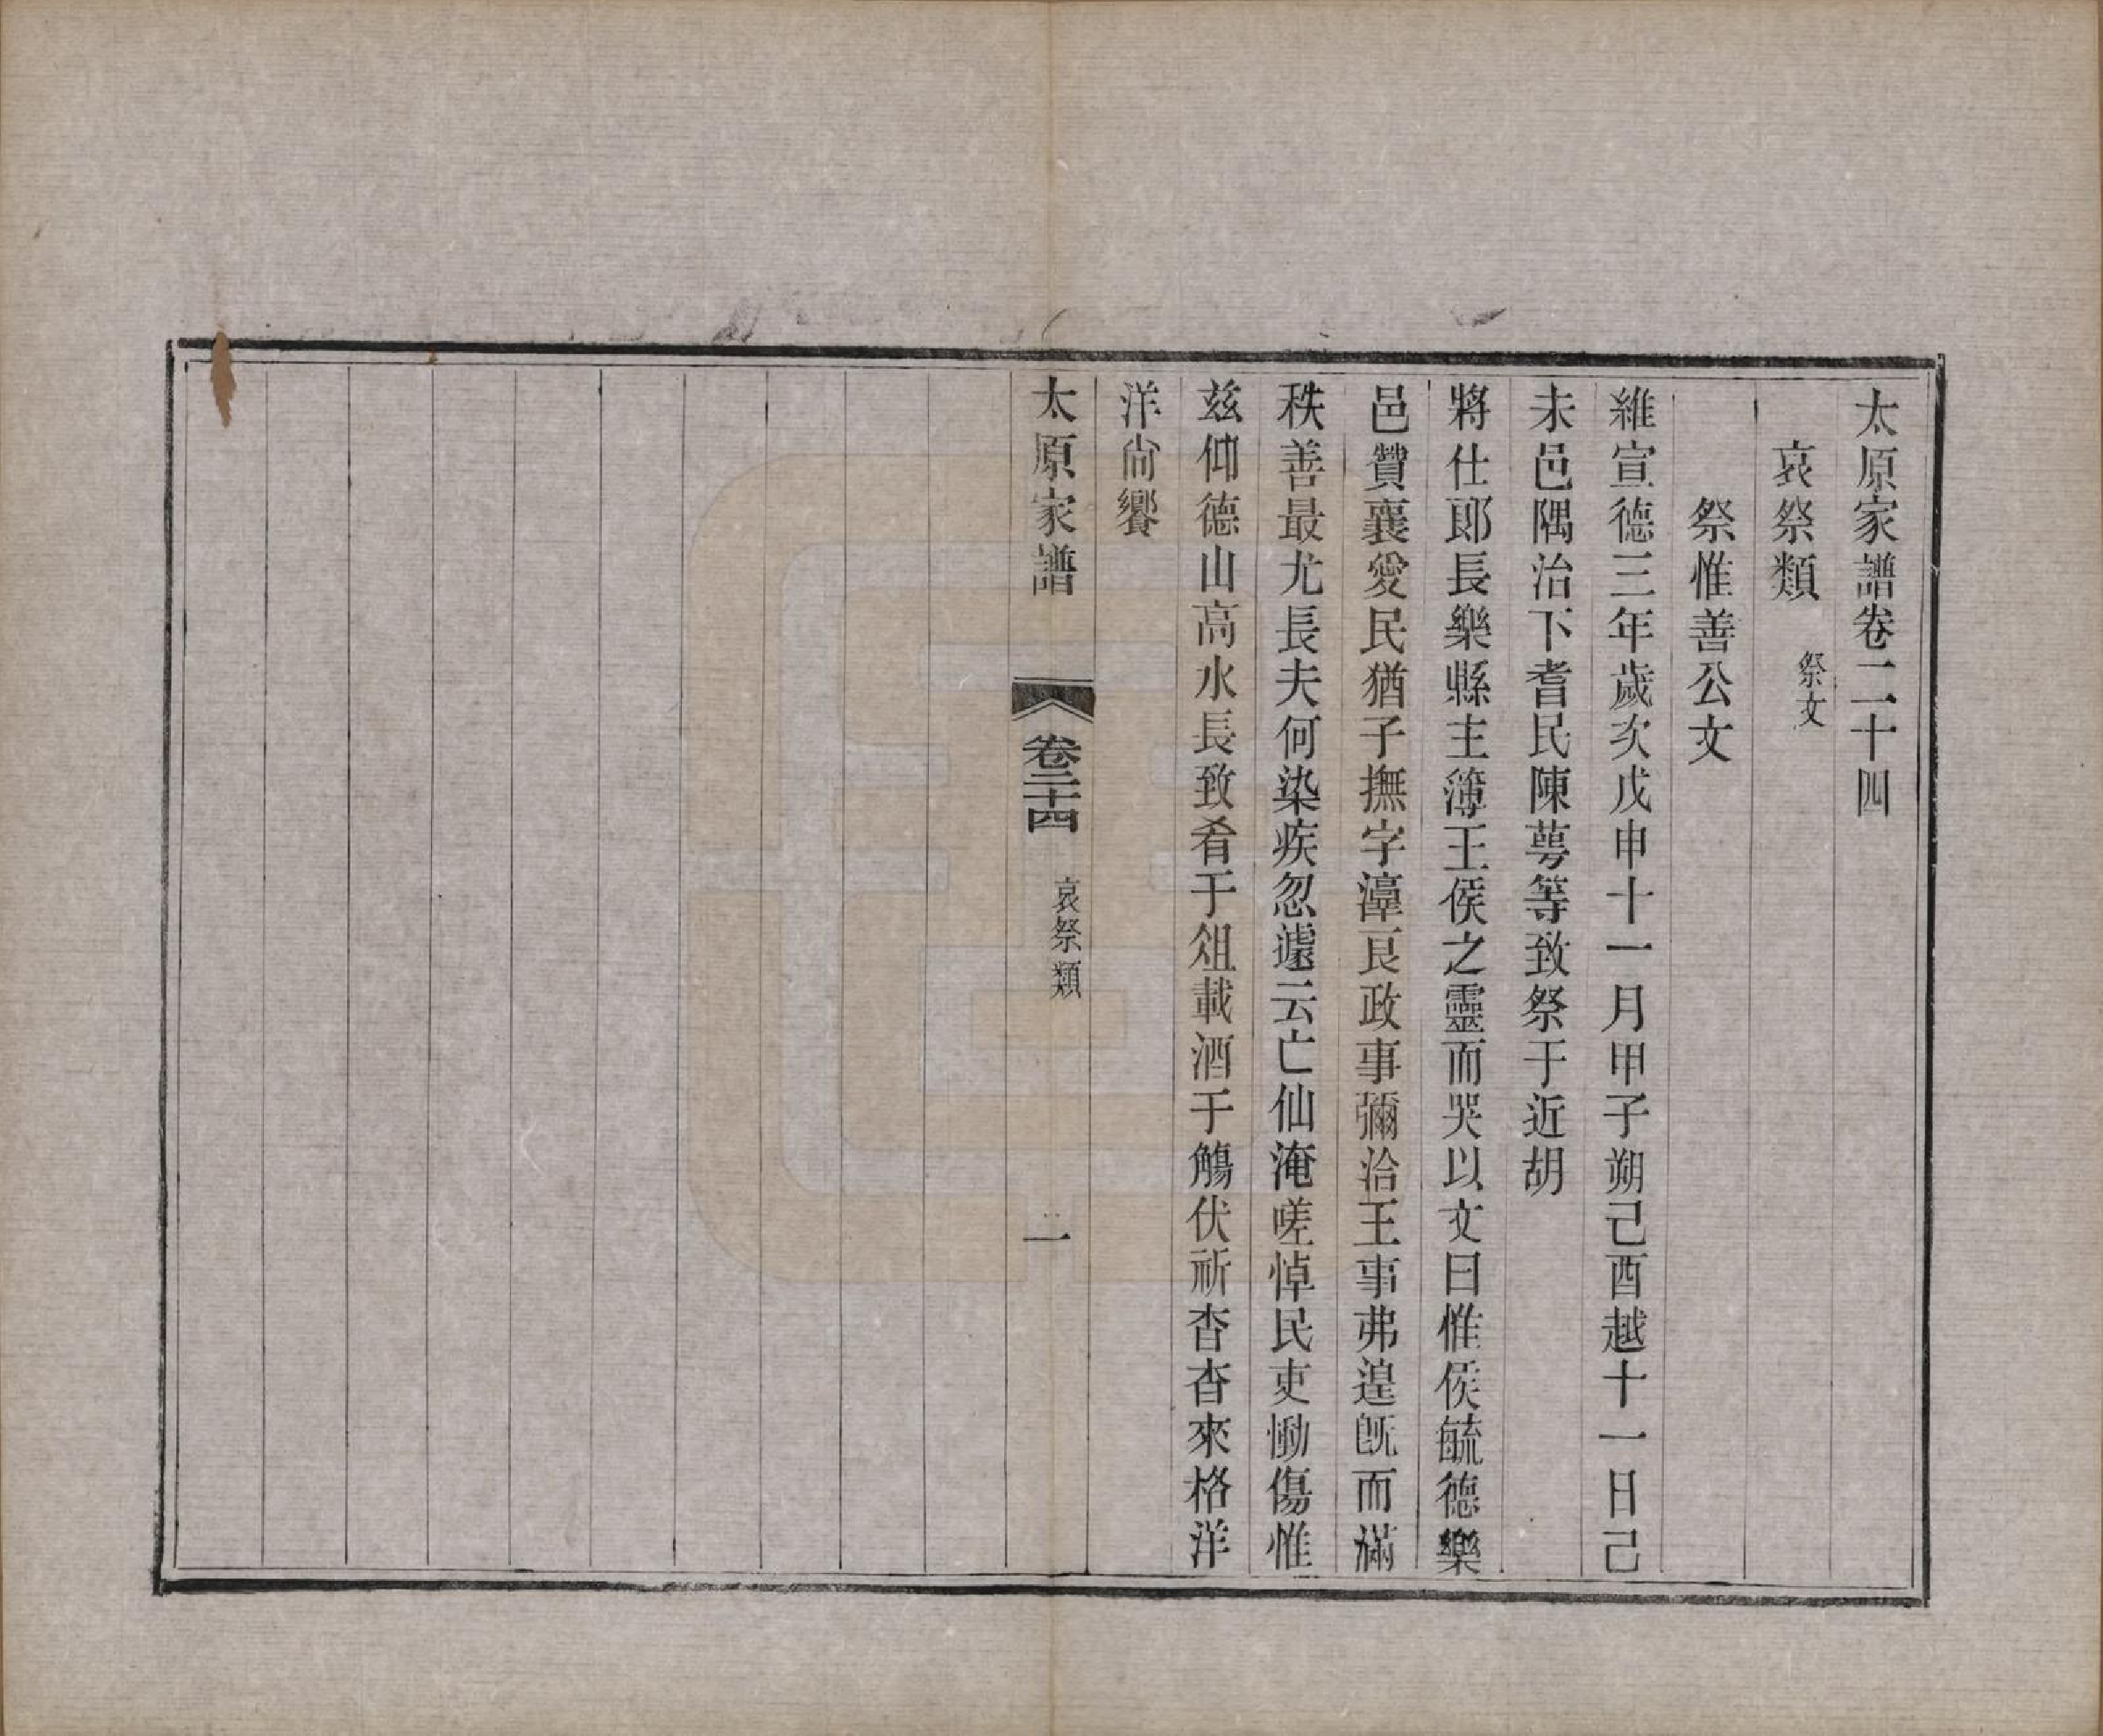 太原家譜卷二十四
哀祭類 祭文
祭惟善公文
維宣德三年歲次戊申十一月甲子朔己酉越十一日己
未邑隅治下耆民陳蕚等致祭于近胡
將仕郎長樂縣主簿王侯之靈而哭以文曰惟侯毓德樂
邑贊襄愛民猶子撫字漳艮政事彌洽王事弗遑旣而滿
秩善最尤長夫何染疾忽遽云亡仙淹嗟悼民吏慟傷惟
茲仰德山高水長致肴于俎載酒于觴伏祈杳杳來格洋
洋尙饗
太原家譜 卷二十四 哀祭類 一